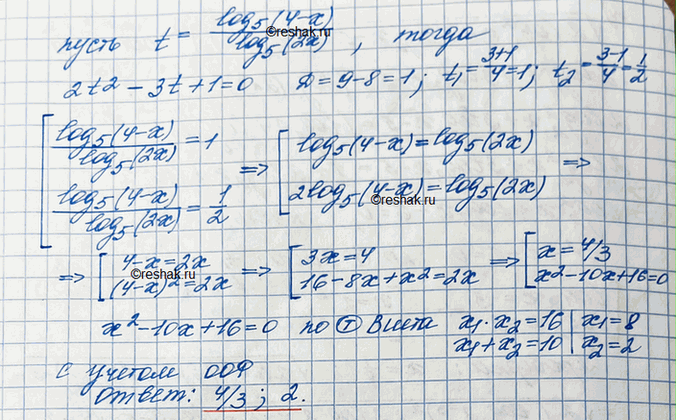 пусть t = log₅(4-x) / log₅(2x), тогда
©reshak.ru
2t2 - 3t + 1 = 0 D = 9 - 8 = 1; t₁ = (3+1)/4 = 1; t₂ = (3-1)/4 = 1/2
[ log₅(4-x) / log₅(2x) = 1 => [ log₅(4-x) = log₅(2x) =>
log₅(4-x) / log₅(2x) = 1/2 2log₅(4-x) = log₅(2x)
©reshak.ru
=> [ 4-x = 2x => [ 3x = 4 => [ x = 4/3
(4-x)² = 2x 16 - 8x + x² = 2x x² - 10x + 16 = 0
©reshak.ru
x² - 10x + 16 = 0 по Ⓣ Виета x₁ · x₂ = 16 | x₁ = 8
x₁ + x₂ = 10 | x₂ = 2
с учетом ООФ
ответ: 4/3; 2.